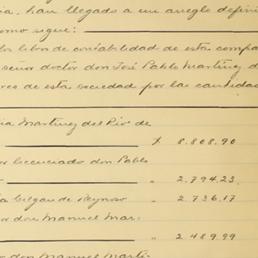 ia, han llegado a un arreglo defini
como sigue:
los libros de contabilidad de esta compa
señor doctor don José Pablo Martínez d
res de esta sociedad por las cantidad
ia Martínez del Río de
$ 8.808.90
or licenciado don Pablo
" 2.794.23
" 2.736.17
or don Manuel Mar
" 2.489.99
or don Manuel Martín